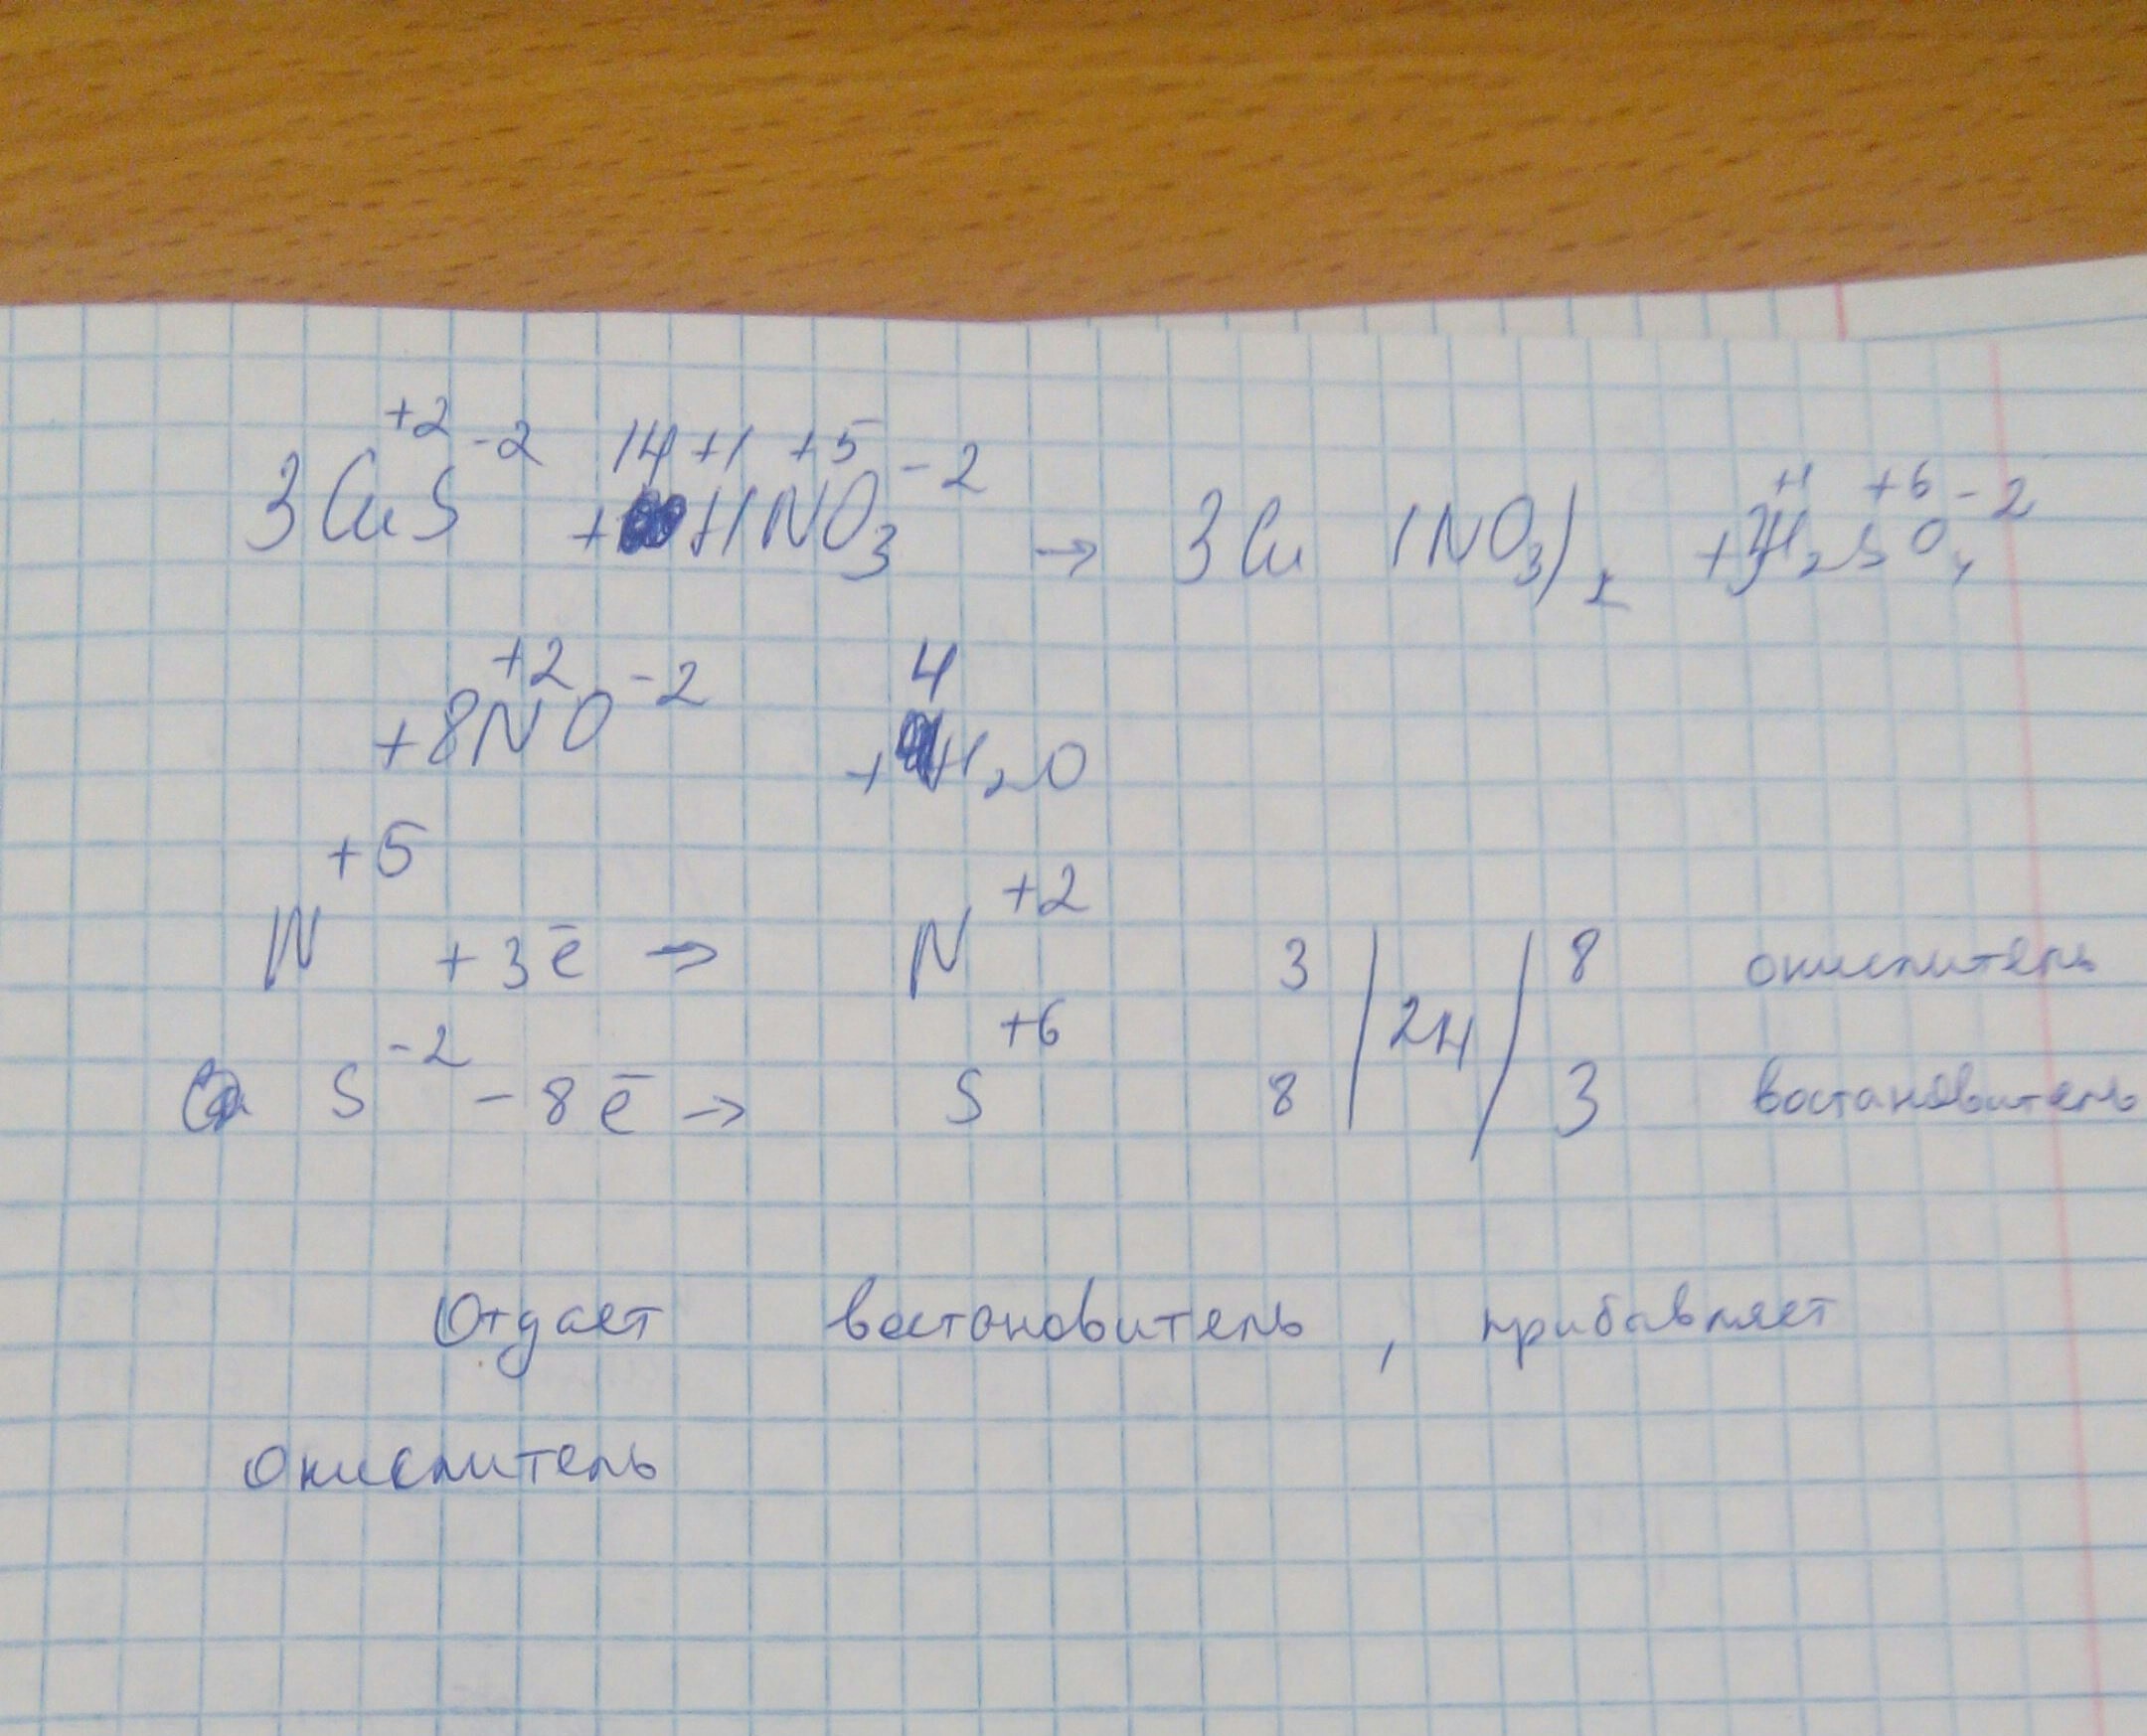 3CuS⁺²⁻² + 14 H⁺¹N⁺⁵O₃⁻² → 3Cu (NO₃)₂ + 3H₂⁺¹S⁺⁶O₄⁻²
+8N⁺²O⁻² + 4 H₂O
N⁺⁵ +3ē → N⁺² 3 | 24 | 8 окислитель
S⁻² - 8ē → S⁺⁶ 8 | | 3 востановитель
Отдает востановитель, прибавляет
окислитель